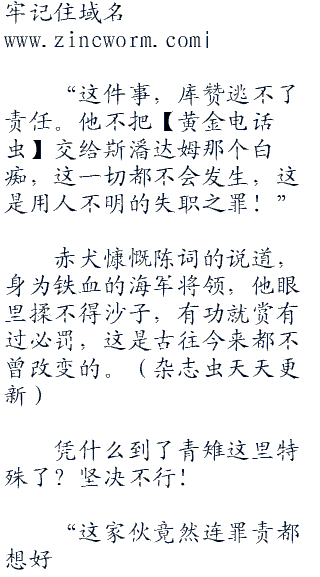 牢记住域名
www.zincworm.com|
“这件事，库赞逃不了
责任。他不把【黄金电话
虫】交给斯潘达姆那个白
痴，这一切都不会发生，这
是用人不明的失职之罪！”
赤犬慷慨陈词的说道，
身为铁血的海军将领，他眼
里揉不得沙子，有功就赏有
过必罚，这是古往今来都不
曾改变的。（杂志虫天天更
新）
凭什么到了青雉这里特
殊了？坚决不行！
“这家伙竟然连罪责都
想好